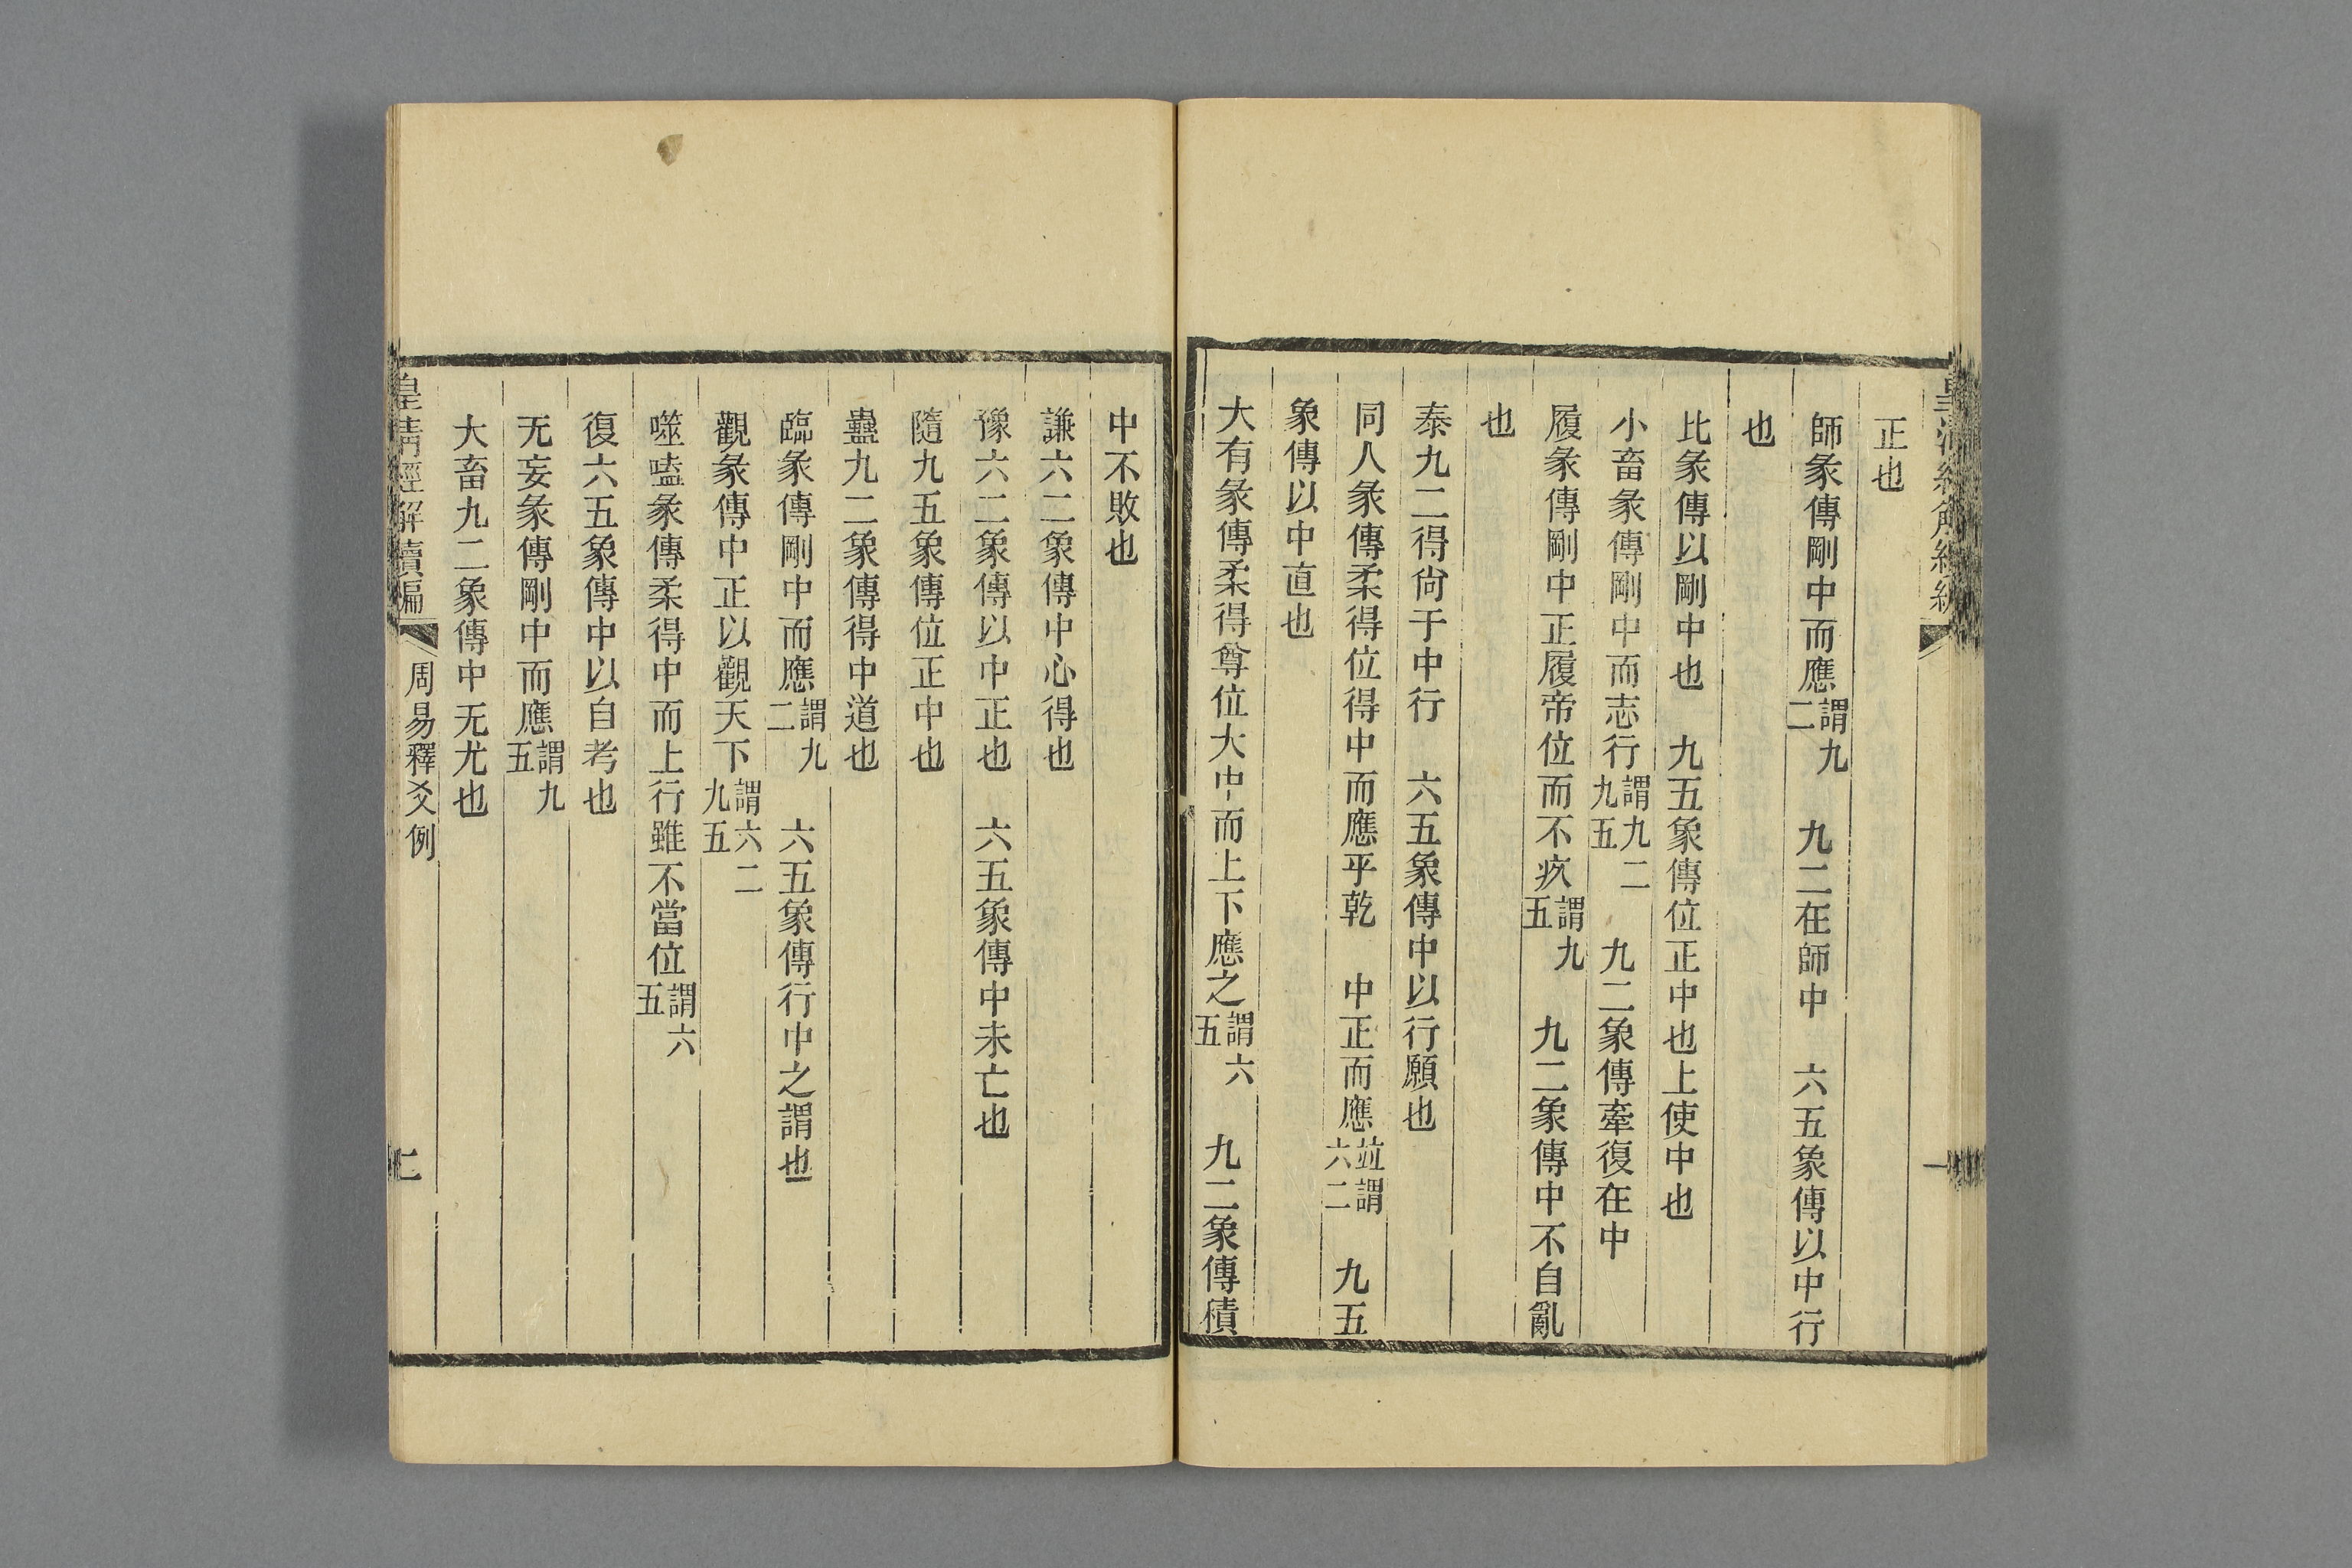 正也
師彖傳剛中而應謂九二　九二在師中　六五象傳以中行
也
比彖傳以剛中也　九五象傳位正中也上使中也
小畜彖傳剛中而志行謂九二九五　九二象傳牽復在中
履彖傳剛中正履帝位而不疚謂九五　九二象傳中不自亂
也
泰九二得尙于中行　六五象傳中以行願也
同人彖傳柔得位得中而應乎乾　中正而應竝謂六二　九五
象傳以中直也
大有彖傳柔得尊位大中而上下應之謂六五　九二象傳積
中不敗也
謙六二象傳中心得也
豫六二象傳以中正也　六五象傳中未亡也
隨九五象傳位正中也
蠱九二象傳得中道也
臨彖傳剛中而應謂九二　六五象傳行中之謂也
觀彖傳中正以觀天下謂六二九五
噬嗑彖傳柔得中而上行雖不當位謂六五
復六五象傳中以自考也
无妄彖傳剛中而應謂九五
大畜九二象傳中无尤也
皇清經解續編　周易釋爻例　二